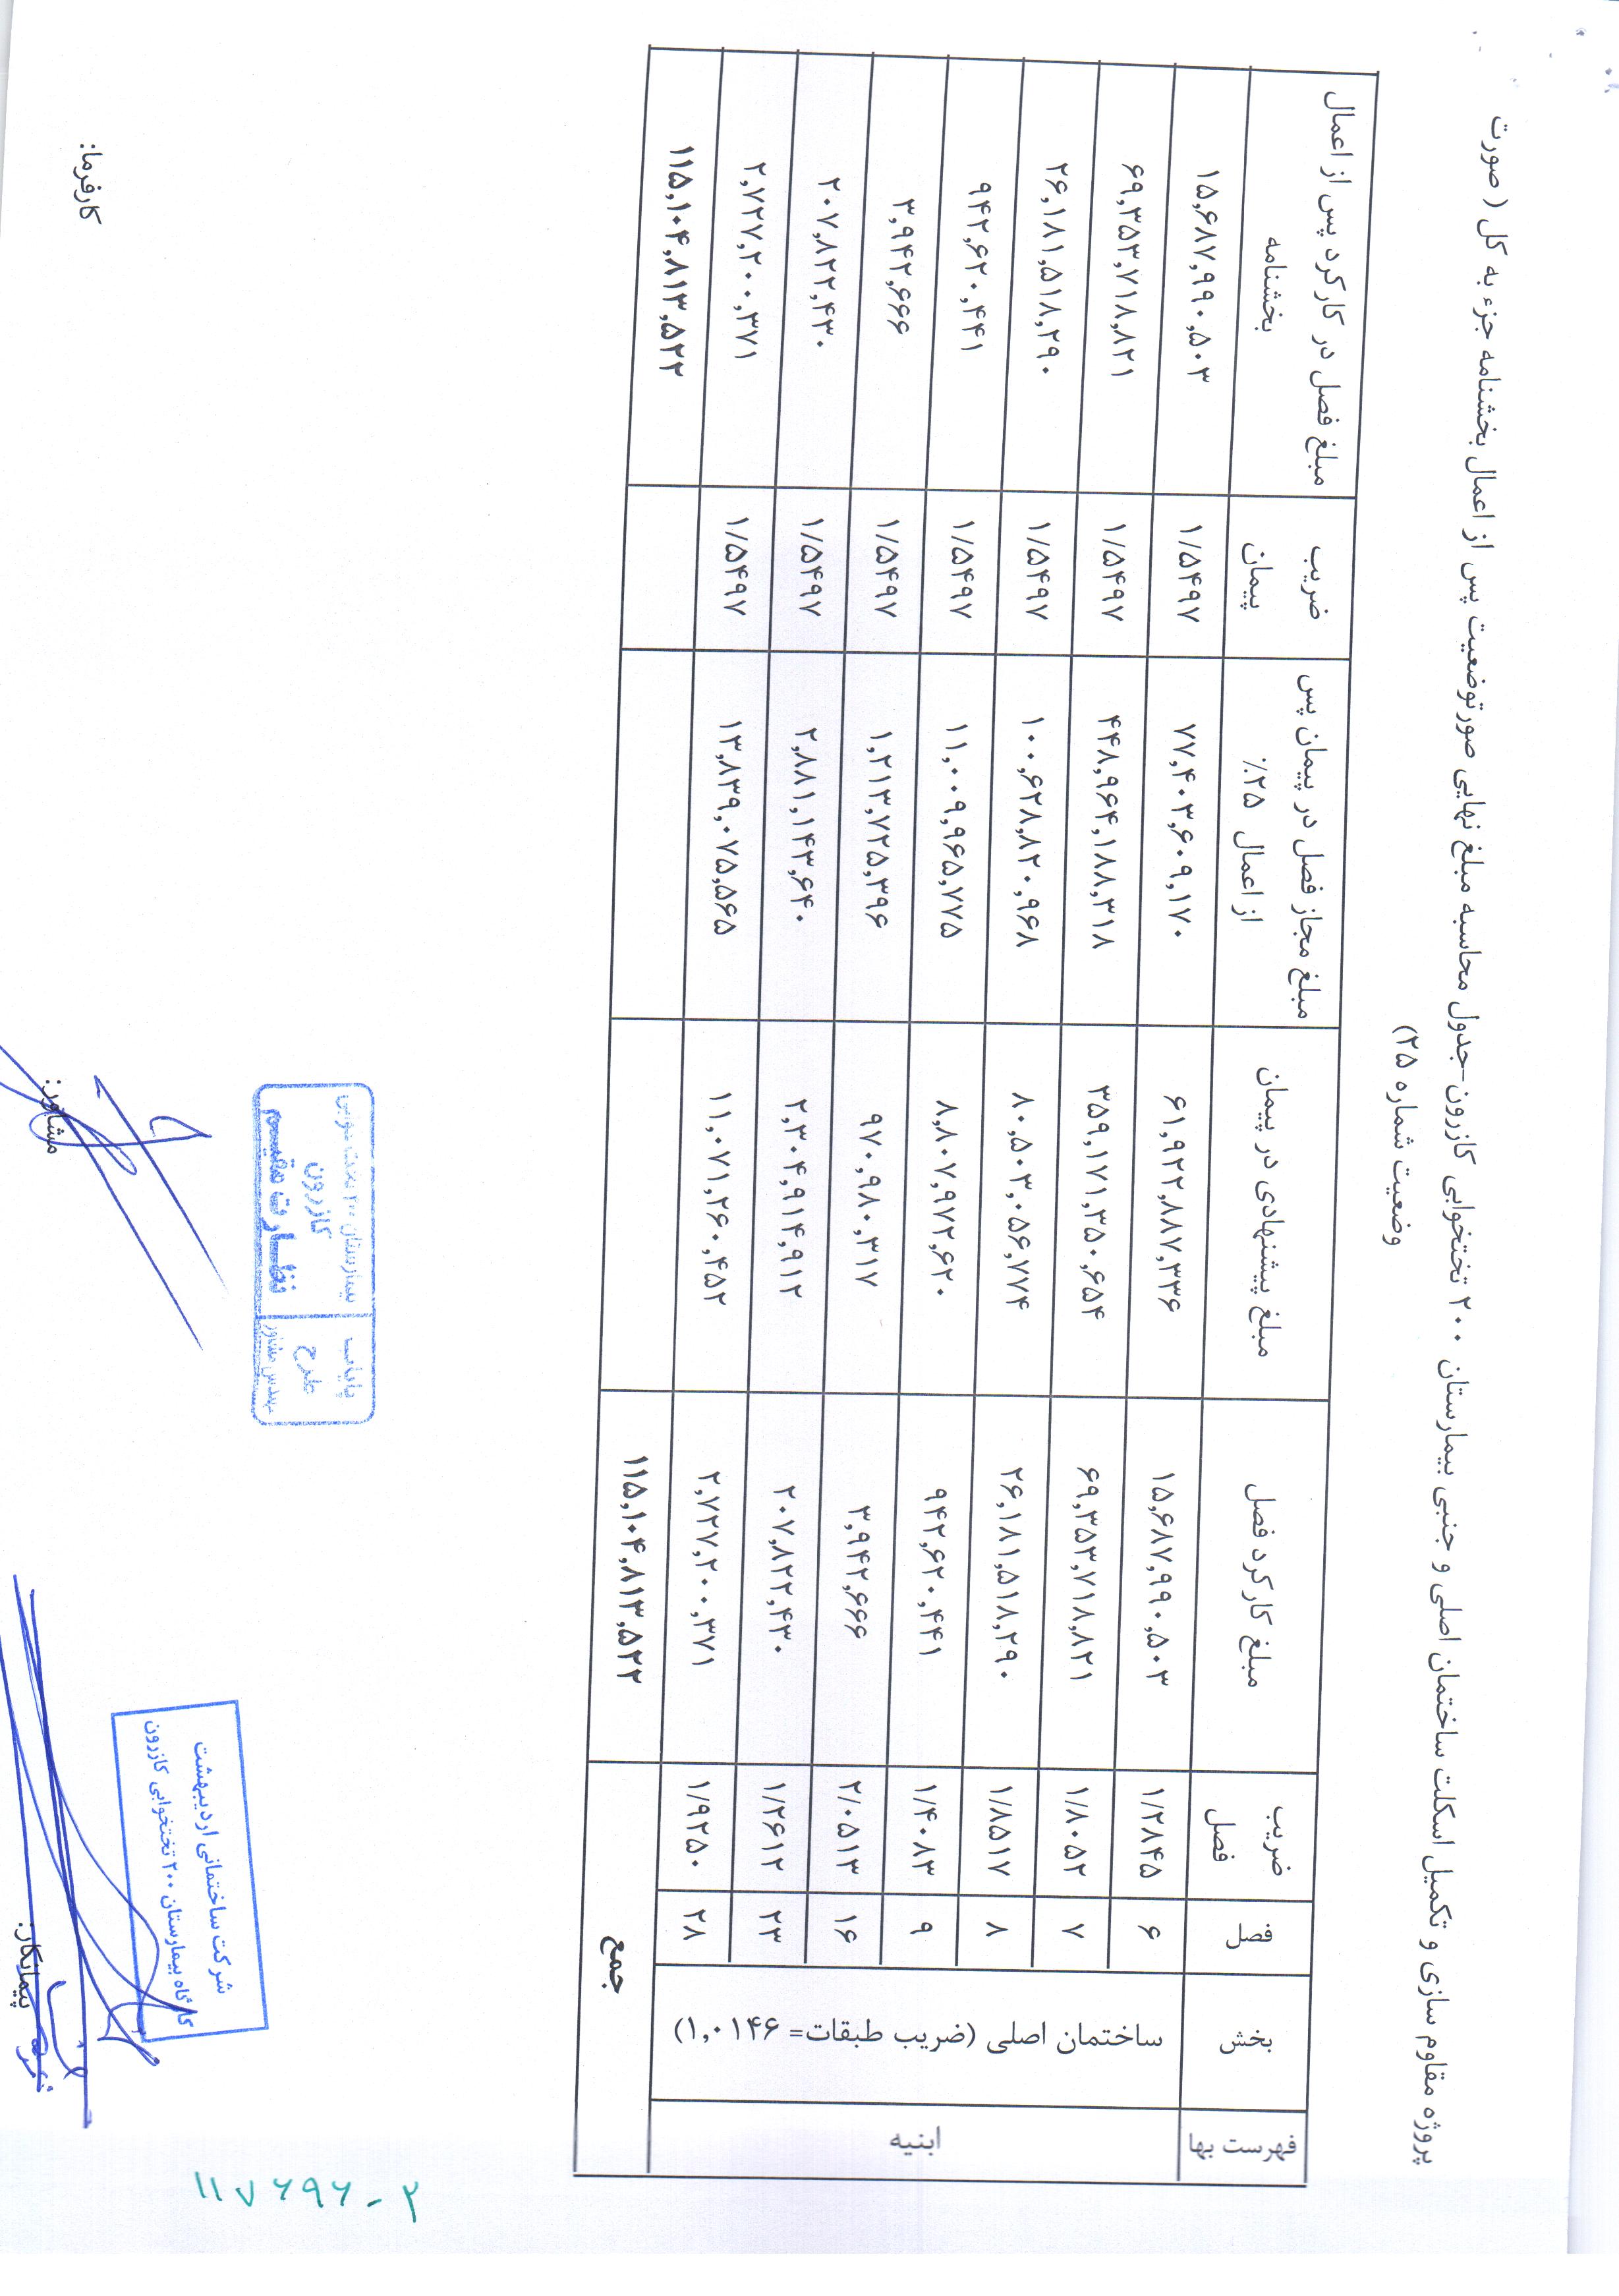 پروژه مقاوم سازی و تکمیل اسکلت ساختمان اصلی و جنبی بیمارستان ۲۰۰ تختخوابی کازرون-جدول محاسبه مبلغ نهایی صورتوضعیت پس از اعمال بخشنامه جزء به کل ( صورت
وضعیت شماره ۲۵)
فهرست بها بخش فصل ضریب فصل مبلغ کارکرد فصل مبلغ پیشنهادی در پیمان مبلغ مجاز فصل در پیمان پس از اعمال ۲۵٪ ضریب پیمان مبلغ فصل در کارکرد پس از اعمال بخشنامه
ابنیه ساختمان اصلی (ضریب طبقات= ۱,۰۱۴۶)
۶ ۱/۲۸۴۵ ۱۵,۶۸۷,۹۹۰,۵۰۳ ۶۱,۹۲۲,۸۸۷,۳۳۶ ۷۷,۴۰۳,۶۰۹,۱۷۰ ۱/۵۴۹۷ ۱۵,۶۸۷,۹۹۰,۵۰۳
۷ ۱/۸۰۵۲ ۶۹,۳۵۳,۷۱۸,۸۲۱ ۳۵۹,۱۷۱,۳۵۰,۶۵۴ ۴۴۸,۹۶۴,۱۸۸,۳۱۸ ۱/۵۴۹۷ ۶۹,۳۵۳,۷۱۸,۸۲۱
۸ ۱/۸۵۱۷ ۲۶,۱۸۱,۵۱۸,۲۹۰ ۸۰,۵۰۳,۰۵۶,۷۷۴ ۱۰۰,۶۲۸,۸۲۰,۹۶۸ ۱/۵۴۹۷ ۲۶,۱۸۱,۵۱۸,۲۹۰
۹ ۱/۴۰۸۳ ۹۴۲,۶۲۰,۴۴۱ ۸,۸۰۷,۹۷۲,۶۲۰ ۱۱,۰۰۹,۹۶۵,۷۷۵ ۱/۵۴۹۷ ۹۴۲,۶۲۰,۴۴۱
۱۶ ۲/۰۵۱۳ ۳,۹۴۲,۶۶۶ ۹۷۰,۹۸۰,۳۱۷ ۱,۲۱۳,۷۲۵,۳۹۶ ۱/۵۴۹۷ ۳,۹۴۲,۶۶۶
۲۳ ۱/۲۶۱۲ ۲۰۷,۸۲۲,۴۳۰ ۲,۳۰۴,۹۱۴,۹۱۲ ۲,۸۸۱,۱۴۳,۶۴۰ ۱/۵۴۹۷ ۲۰۷,۸۲۲,۴۳۰
۲۸ ۱/۹۲۵۰ ۲,۷۲۷,۲۰۰,۳۷۱ ۱۱,۰۷۱,۲۶۰,۴۵۲ ۱۳,۸۳۹,۰۷۵,۵۶۵ ۱/۵۴۹۷ ۲,۷۲۷,۲۰۰,۳۷۱
جمع ۱۱۵,۱۰۴,۸۱۳,۵۲۲ ۱۱۵,۱۰۴,۸۱۳,۵۲۲
پایاب
طرح
مهندس مشاور
بیمارستان ۲۰۰ تخت خوابی
کازرون
نظارت مقیم
شرکت ساختمانی اردیبهشت
کارگاه بیمارستان ۲۰۰ تختخوابی کازرون
پیمانکار: مشاور: کارفرما:
۱۱۷۶۹۶-۲